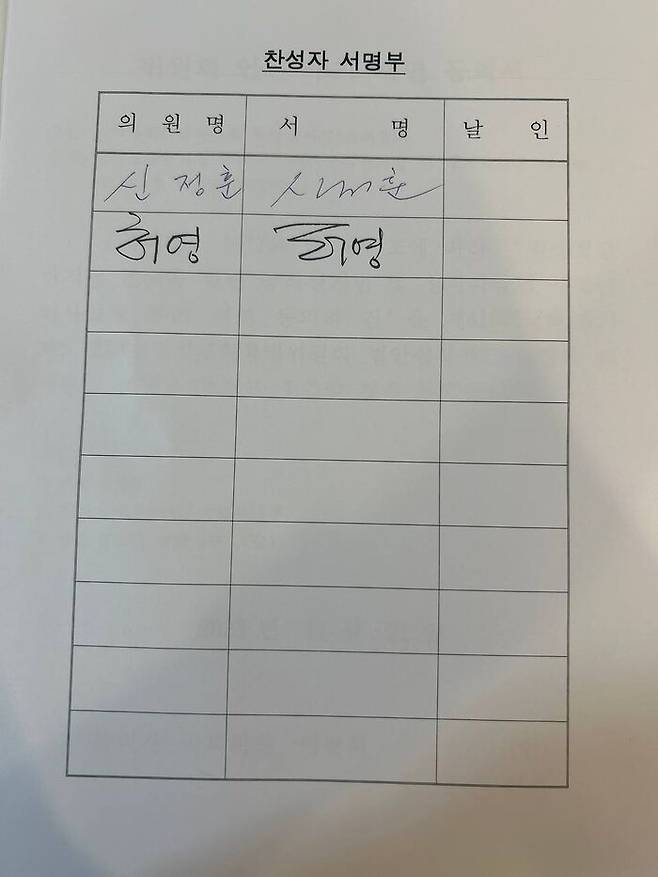 찬성자 서명부
의 원 명 서 명 날 인
신 정 훈 신정훈
허영 허영